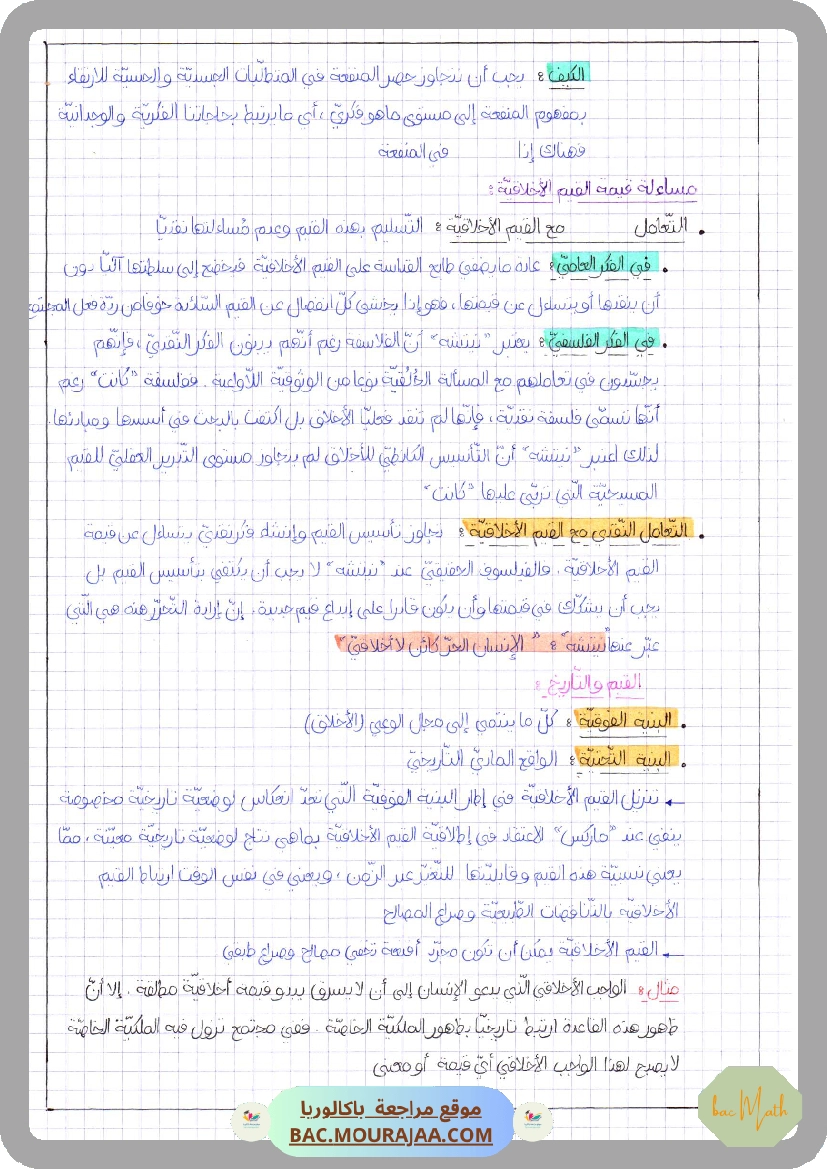 الكيف: يجب أن نتجاوز حصر المنفعة في المتطلّبات الجسديّة والحسيّة للارتقاء
بمفهوم المنفعة إلى مستوى ماهو فكريّ، أي ما يرتبط بحاجاتنا الفكريّة والوجدانيّة
فهناك إذا في المنفعة
مساءلة قيمة القيم الأخلاقيّة:
• التّعامل مع القيم الأخلاقيّة: التّسليم بهذه القيم وعدم مُساءلتها نقديّا
• في الفكر العاميّ: عادة ما يضفي طابع القداسة على القيم الأخلاقيّة فيخضع إلى سلطتها آليّا دون
أن ينقدها أو يتساءل عن قيمتها، فهو إذا يخشى كلّ انفصال عن القيم السّائدة خوفا من ردّة فعل المجتمع
• في الفكر الفلسفيّ: يعتبر "نيتشه" أنّ الفلاسفة رغم أنّهم يدّعون الفكر النّقديّ، فإنّهم
يجسّدون في تعاملهم مع المسألة الخُلُقيّة نوعا من الوثوقيّة اللّاواعية. ففلسفة "كانت" رغم
أنّها تسمّى فلسفة نقديّة، فإنّها لم تنقد فعليّا الأخلاق بل اكتفت بالبحث في أسسها ومبادئها.
لذلك اعتبر "نيتشه" أنّ التّأسيس الكانطيّ للأخلاق لم يتجاوز مستوى التّبرير العقليّ للقيم
المسيحيّة الّتي تربّى عليها "كانت"
• التّعامل النّقدي مع القيم الأخلاقيّة: تجاوز تأسيس القيم وإنشاء فكر نقديّ يتساءل عن قيمة
القيم الأخلاقيّة. والفيلسوف الحقيقيّ عند "نيتشه" لا يجب أن يكتفي بتأسيس القيم بل
يجب أن يشكّك في قيمتها وأن يكون قادرا على إبداع قيم جديدة. إنّ إرادة التّحرّر هذه هي الّتي
عبّر عنها "نيتشه": "الإنسان الحرّ كائن لا أخلاقيّ"
القيم والتّاريخ:
• البنية الفوقيّة: كلّ ما ينتمي إلى مجال الوعي (الأخلاق)
• البنية التّحتيّة: الواقع الماديّ التّاريخيّ
← تتنزّل القيم الأخلاقيّة في إطار البنية الفوقيّة الّتي تعدّ انعكاس لوضعيّة تاريخيّة مخصوصة
ينفي عند "ماركس" الاعتقاد في إطلاقيّة القيم الأخلاقيّة بماهي نتاج لوضعيّة تاريخيّة معيّنة، ممّا
يعني نسبيّة هذه القيم وقابليّتها للتّغيّر عبر الزّمن، ويعني في نفس الوقت ارتباط القيم
الأخلاقيّة بالتّناقضات الطّبقيّة وصراع المصالح
← القيم الأخلاقيّة يمكن أن تكون مجرّد أقنعة تخفي مصالح وصراع طبقي
مثال: الواجب الأخلاقي الّذي يدعو الإنسان إلى أن لا يسرق يبدو قيمة أخلاقيّة مطلقة. إلا أنّ
ظهور هذه القاعدة ارتبط تاريخيّا بظهور الملكيّة الخاصّة. ففي مجتمع تزول فيه الملكيّة الخاصّة
لا يصبح لهذا الواجب الأخلاقي أيّ قيمة أو معنى
موقع مراجعة باكالوريا
BAC.MOURAJAA.COM
bac Math